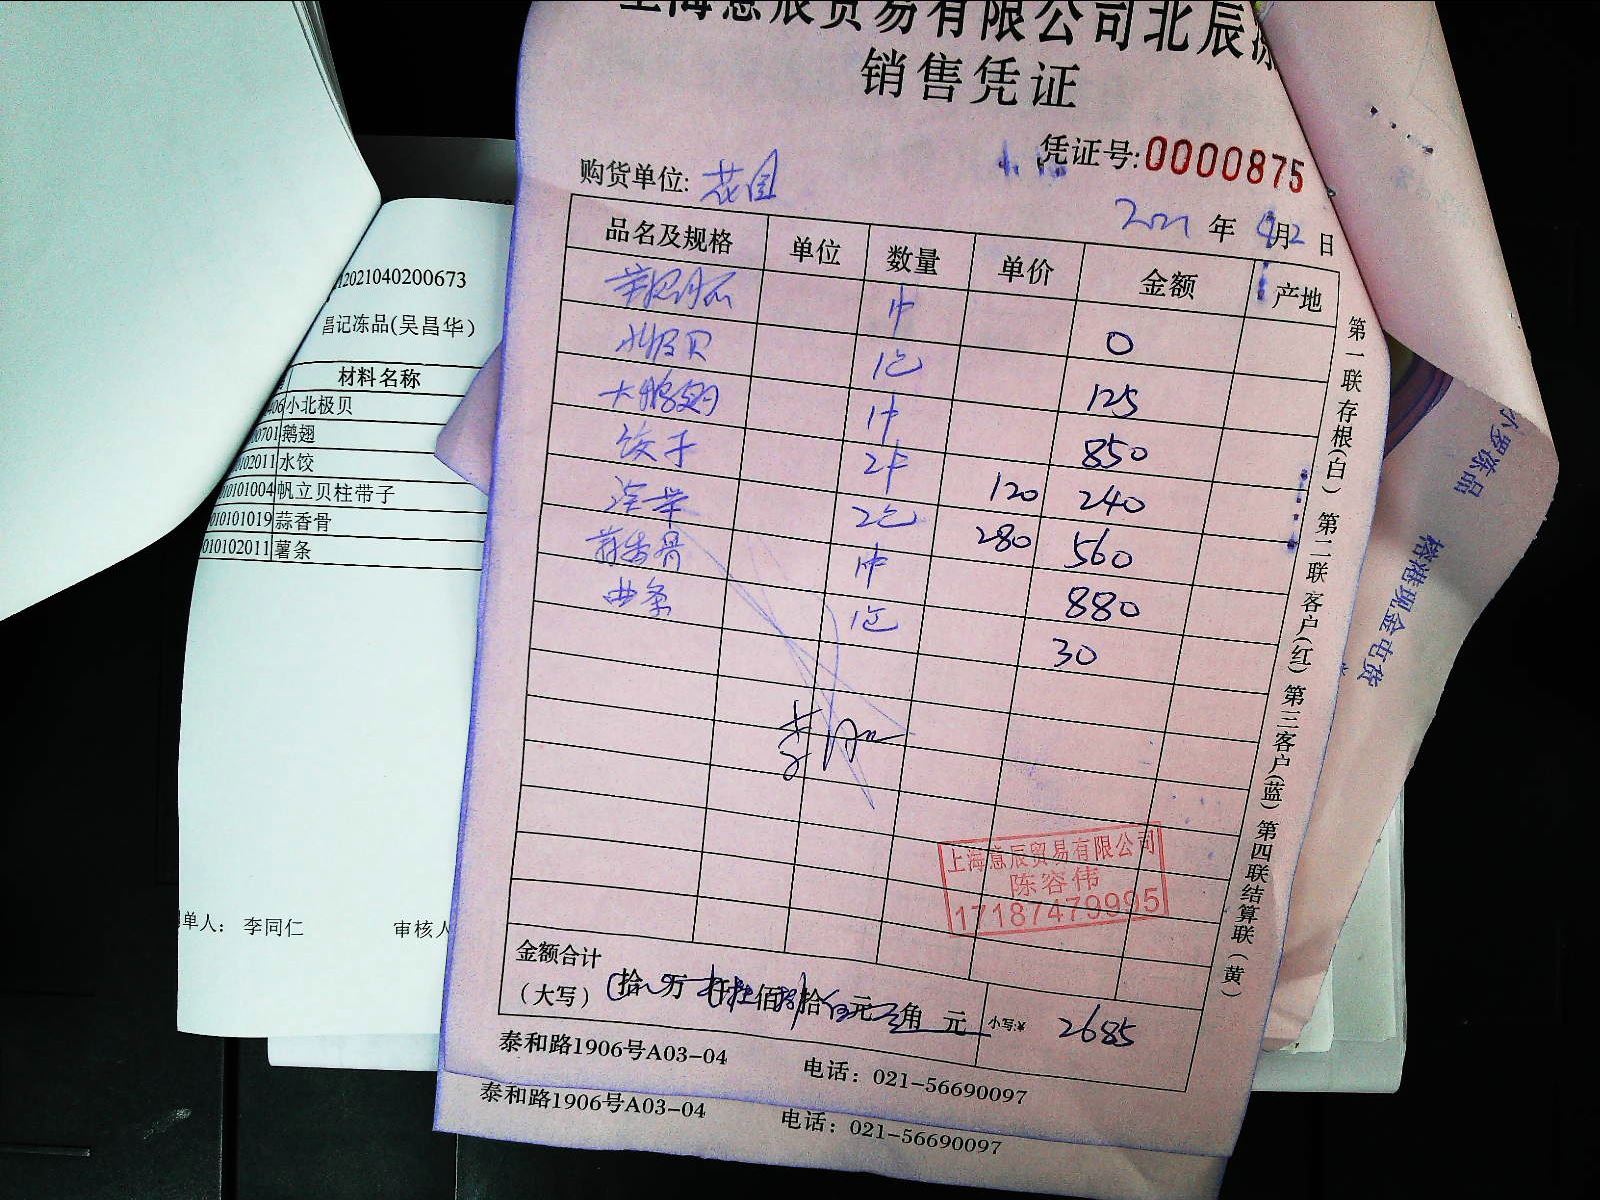 上海意辰贸易有限公司北辰冻
销售凭证
凭证号:0000875
购货单位: 花园
2021 年 4月2日
品名及规格 单位 数量 单价 金额 产地
1件 0
北极贝 1包 125
大鹅翅 1件 850
饺子 2件 120 240
2包 280 560
蒜香骨 1件 880
曲条 1包 30
上海意辰贸易有限公司
陈容伟
17187479995
金额合计
(大写) 拾 万 仟 佰 拾 元 角 元 小写:¥ 2685
泰和路1906号A03-04 电话: 021-56690097
泰和路1906号A03-04 电话: 021-56690097
第一联存根(白) 第二联客户(红) 第三客户(蓝) 第四联结算联(黄)
2021040200673
昌记冻品(吴昌华)
材料名称
406 小北极贝
00701 鹅翅
0102011 水饺
010101004 帆立贝柱带子
010101019 蒜香骨
010102011 薯条
单人: 李同仁 审核人
小罗冻品